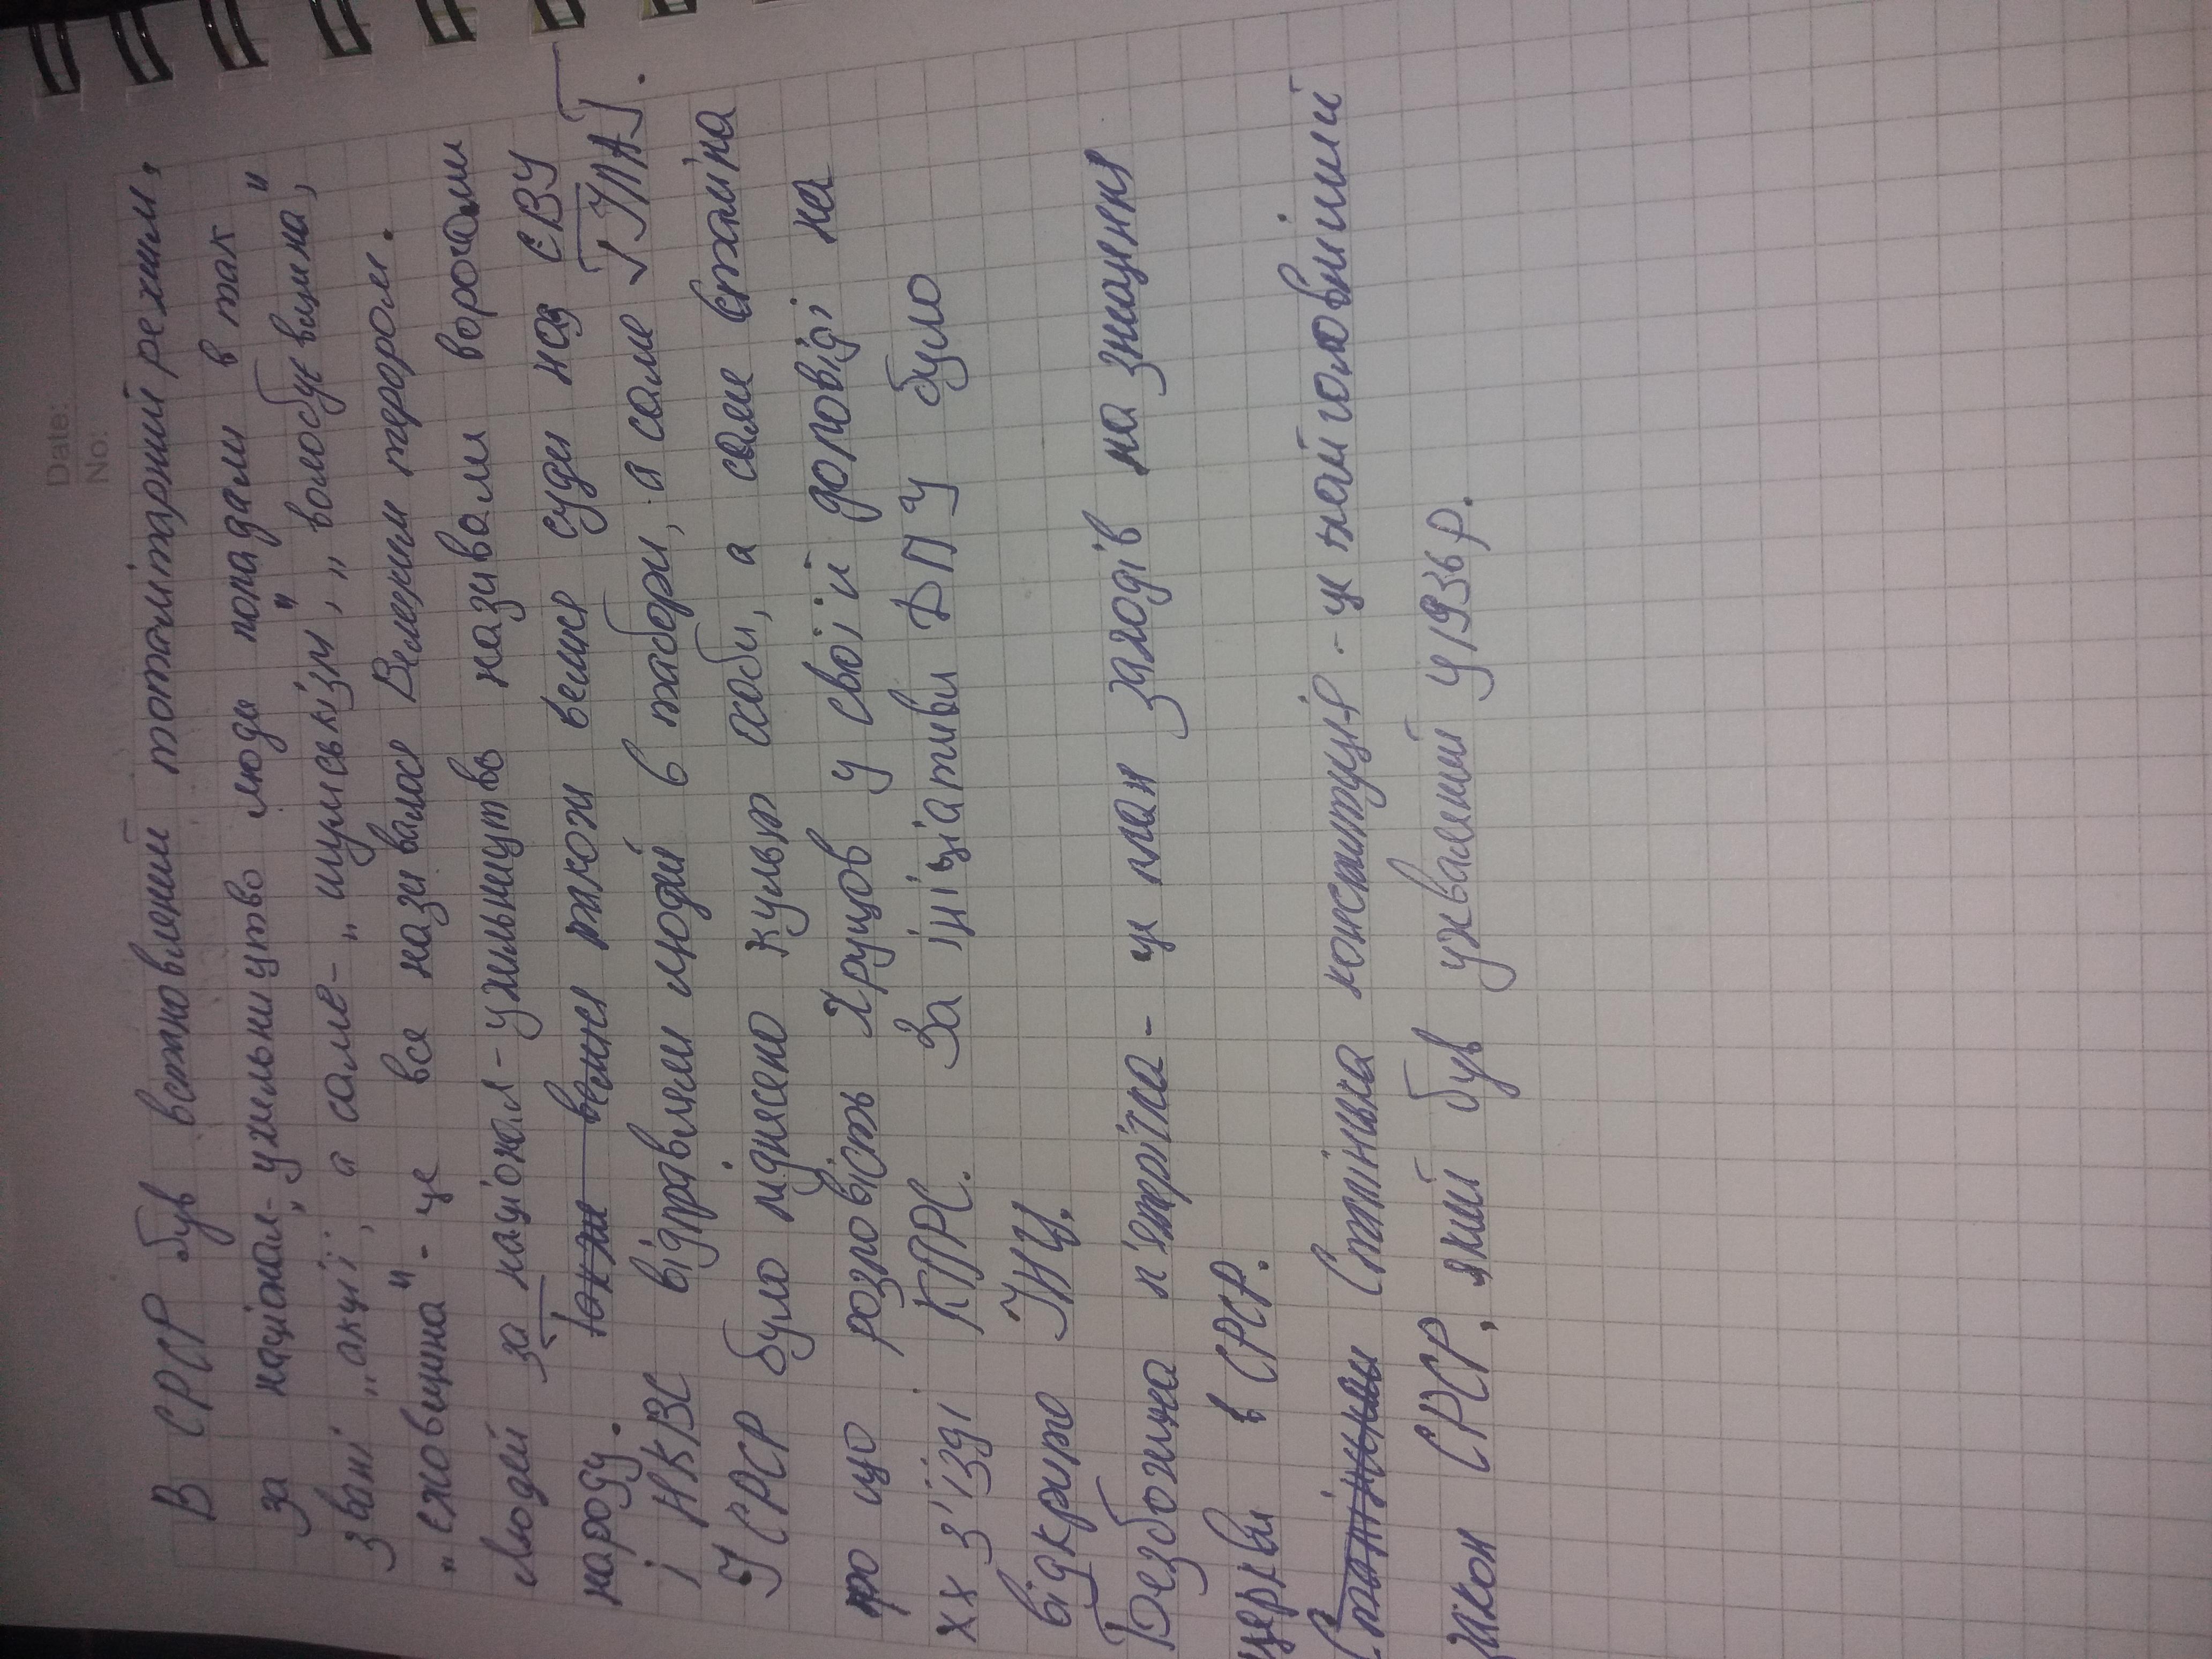 Date:
No:
В СРСР був встановлений тоталітарний режим,
за націонал-„ухильництво люди попадали в так"
звані „акції", а саме - „шумськізм", „волобуєвщина",
„єжовщина" - це все називалося Великим терором.
людей за націонал-ухильництво називали ворогами
народу. також велися суди над СВУ
і НКВС відправляли людей в табори, а саме ГУЛАГ.
У СРСР було піднесено культ особи, а саме Сталіна
про що розповість Хрущов у своїй доповіді на
ХХ з'їзді КПРС. За ініціативи ДПУ було
відкрито УНЦ.
Безбожна п'ятирічка - це план заходів на знищення
церкви в СРСР.
Сталінська конституція - це найголовніший
закон СРСР, який був ухвалений у 1936 р.